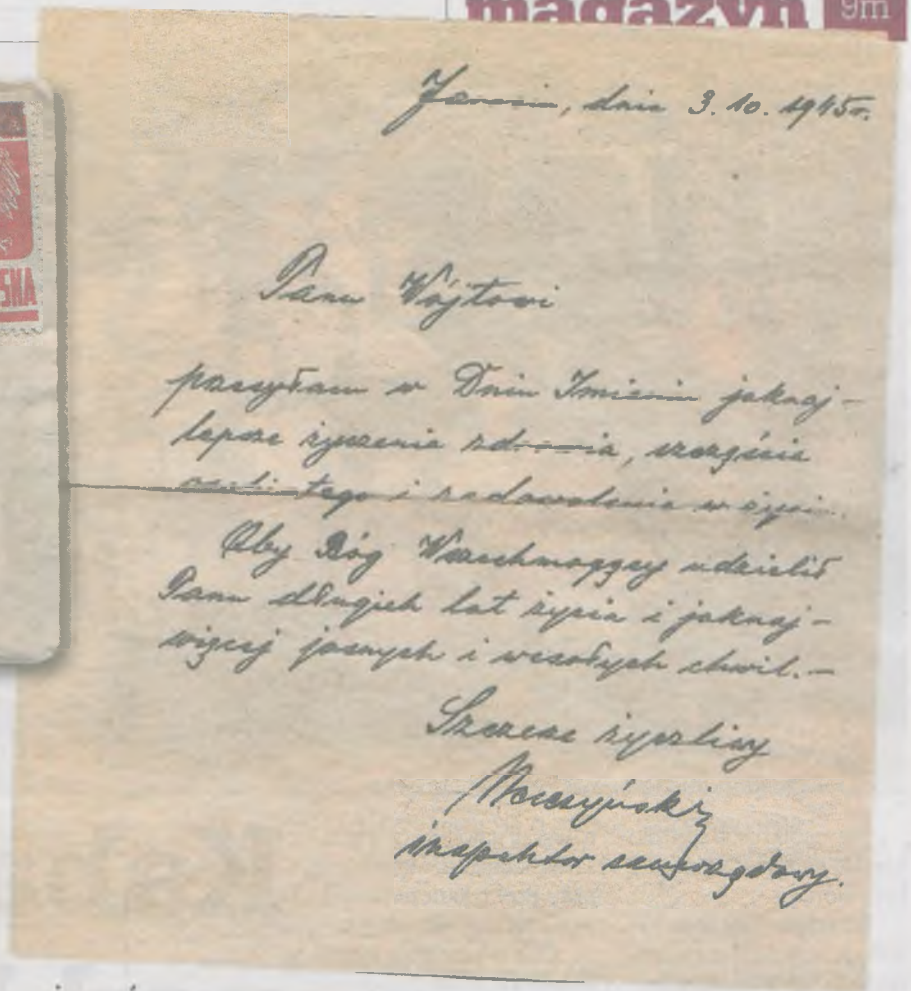 magazyn 9m
SKA
dnia 3. 10. 1945r.
Panu Wójtowi
przesyłam w Dniu Imienin jaknaj-
lepsze życzenia zdrowia, szczęścia
osobistego i zadowolenia w życiu.
Oby Bóg Wszechmogący udzielił
Panu długich lat życia i jaknaj-
więcej jasnych i wesołych chwil.-
Szczerze życzliwy
inspektor samorządowy.